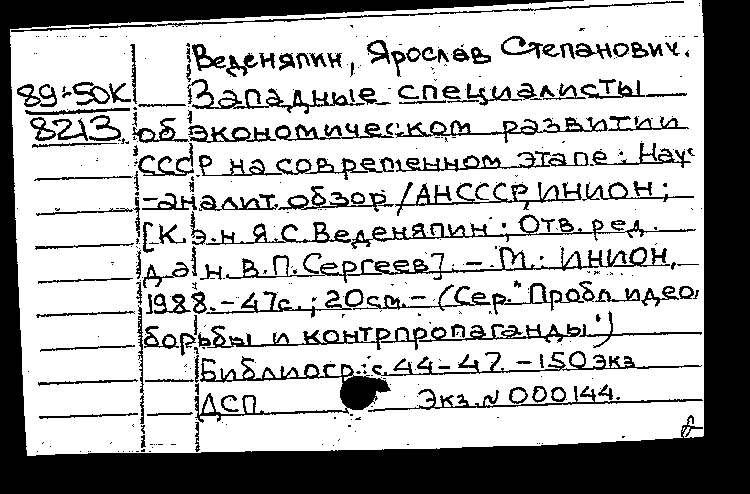 Веденяпин, Ярослав Степанович.
89-50К Западные специалисты
8213. об экономическом развитии
СССР на современном этапе: Науч
-аналит. обзор / АН СССР, ИНИОН;
[К.э.н. Я.С. Веденяпин; Отв. ред.
д.э.н. В.П. Сергеев]. – М.: ИНИОН,
1988. – 47с.; 20см. – (Сер. "Пробл. идео.
борьбы и контрпропаганды")
Библиогр.: с. 44–47. – 150 экз
ДСП. Экз. № 000144.